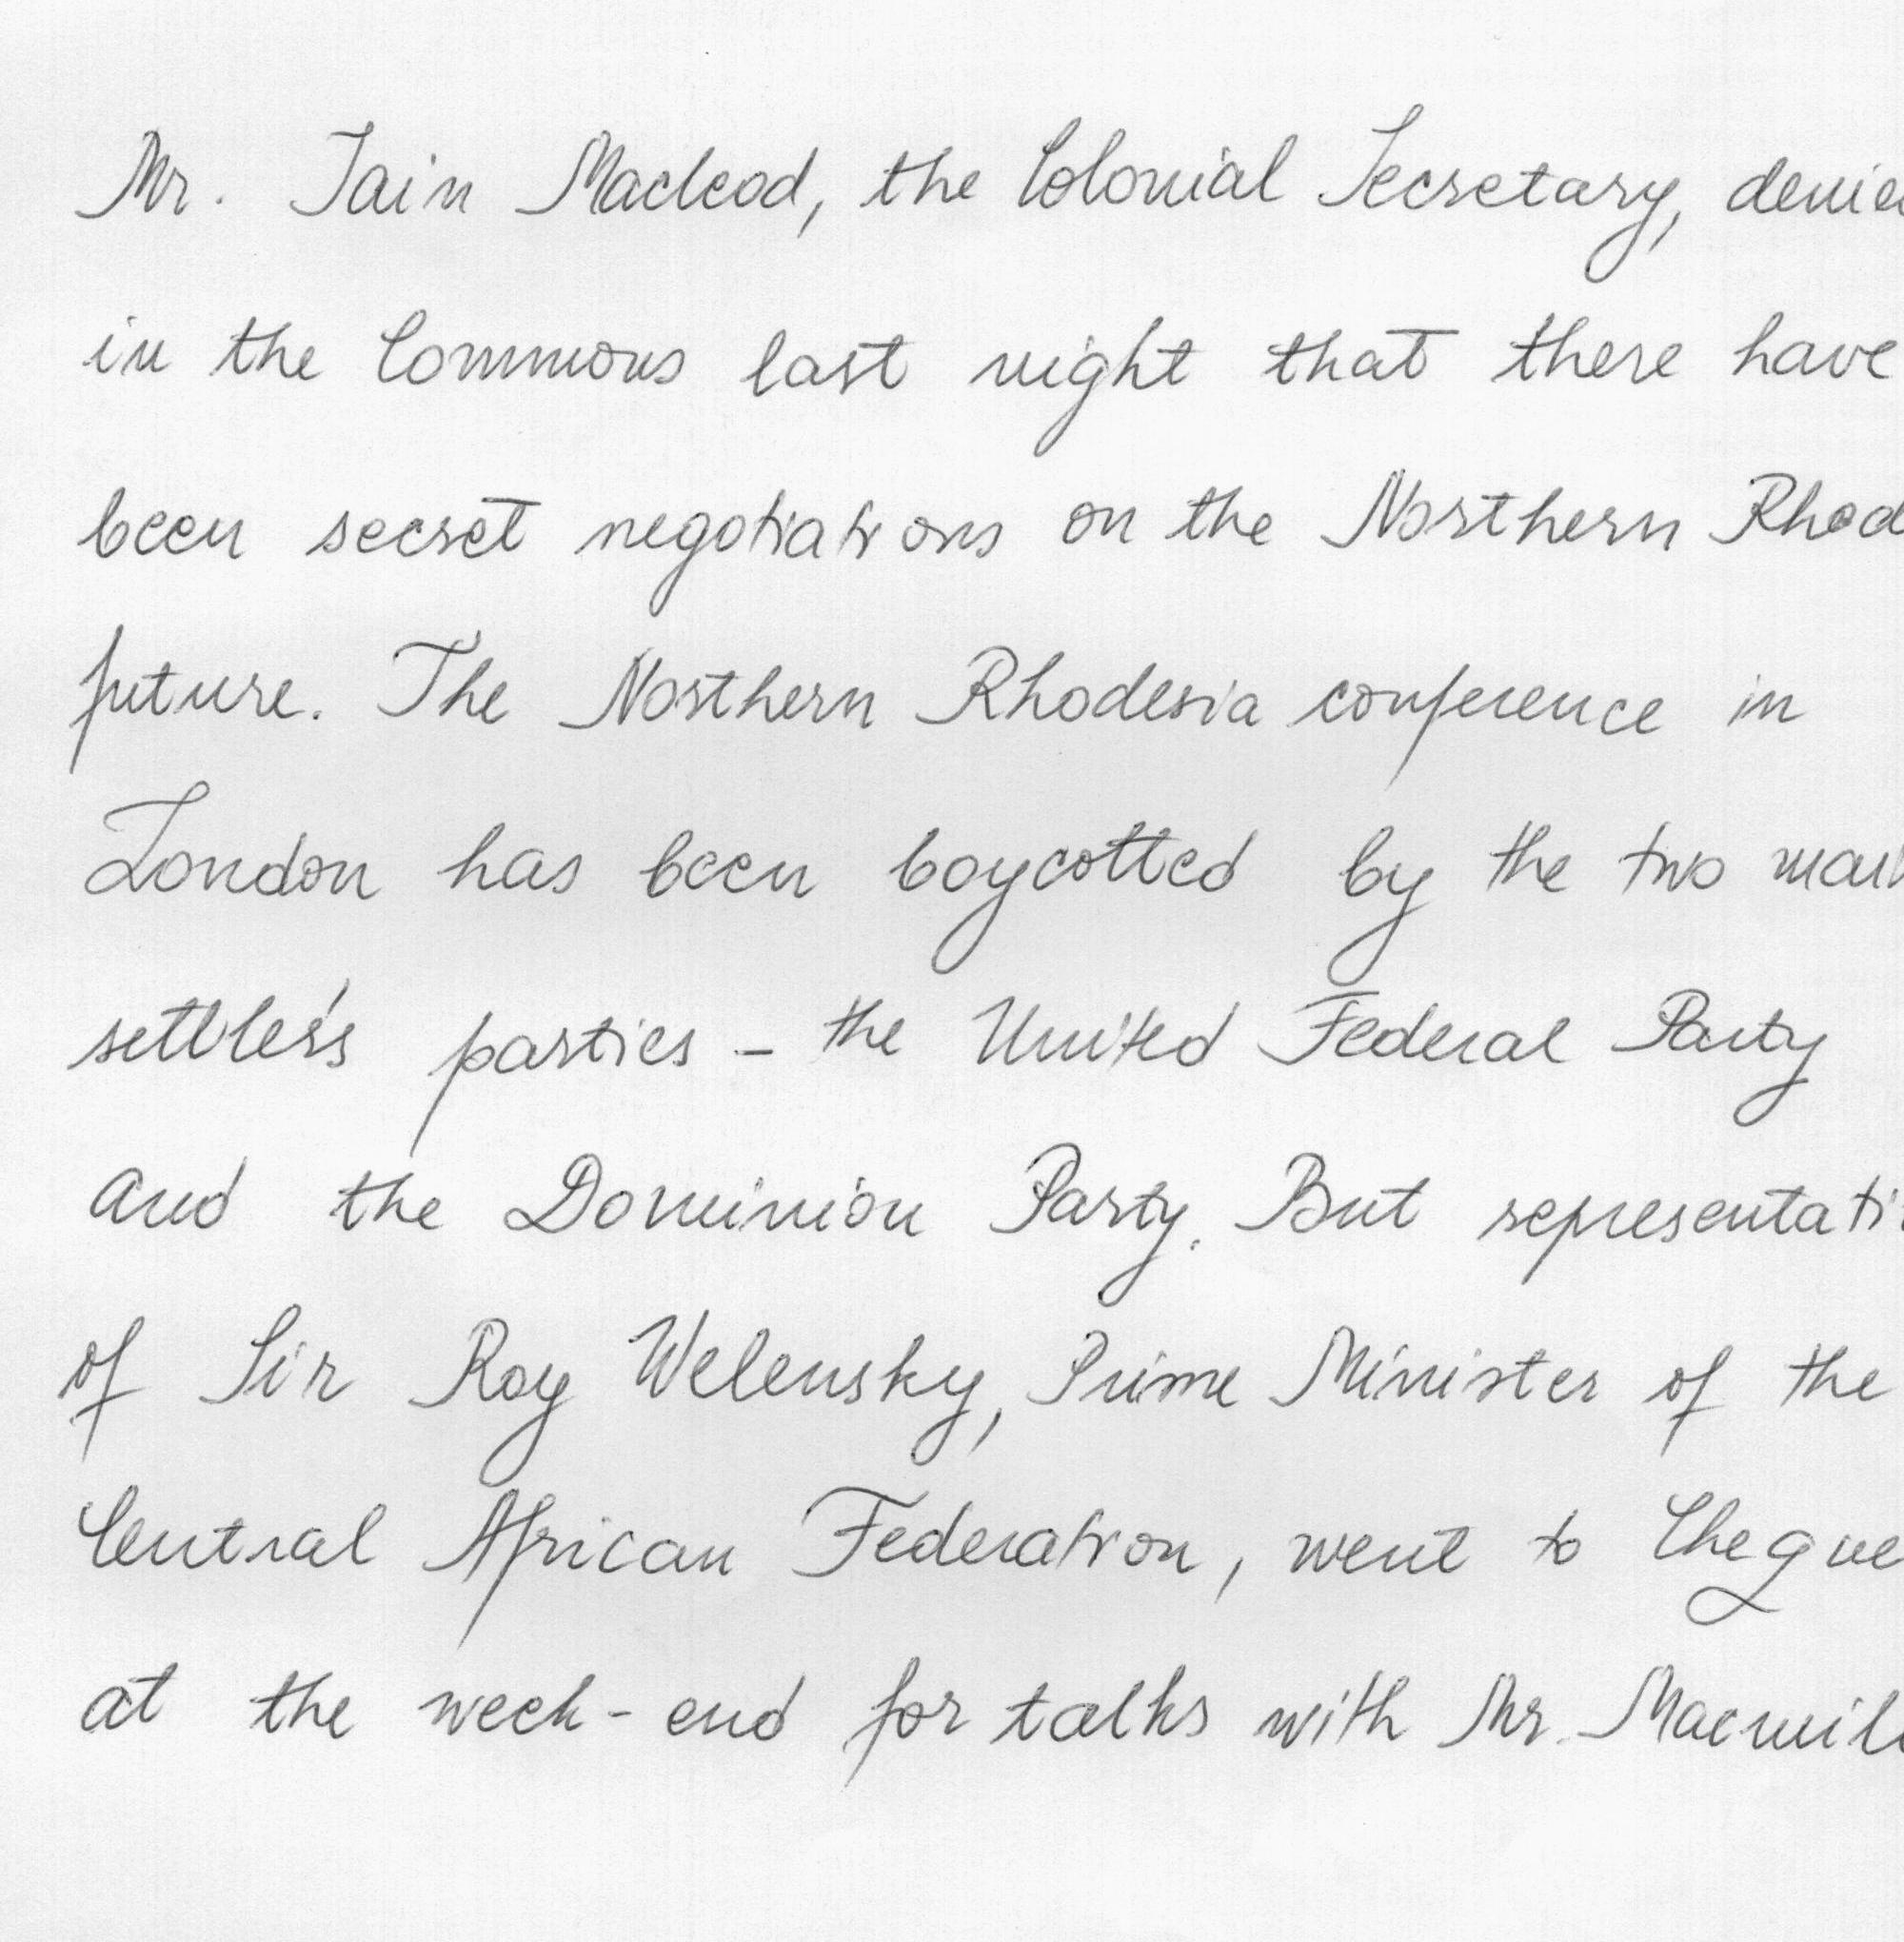 Mr. Iain Macleod, the Colonial Secretary, denie
in the Commons last night that there have
been secret negotiations on the Northern Rhod
future. The Northern Rhodesia conference in
London has been boycotted by the two main
settlers's parties - the United Federal Party
and the Dominion Party. But representati
of Sir Roy Welensky, Prime Minister of the
Central African Federation, went to Cheque
at the week-end for talks with Mr. Macmil